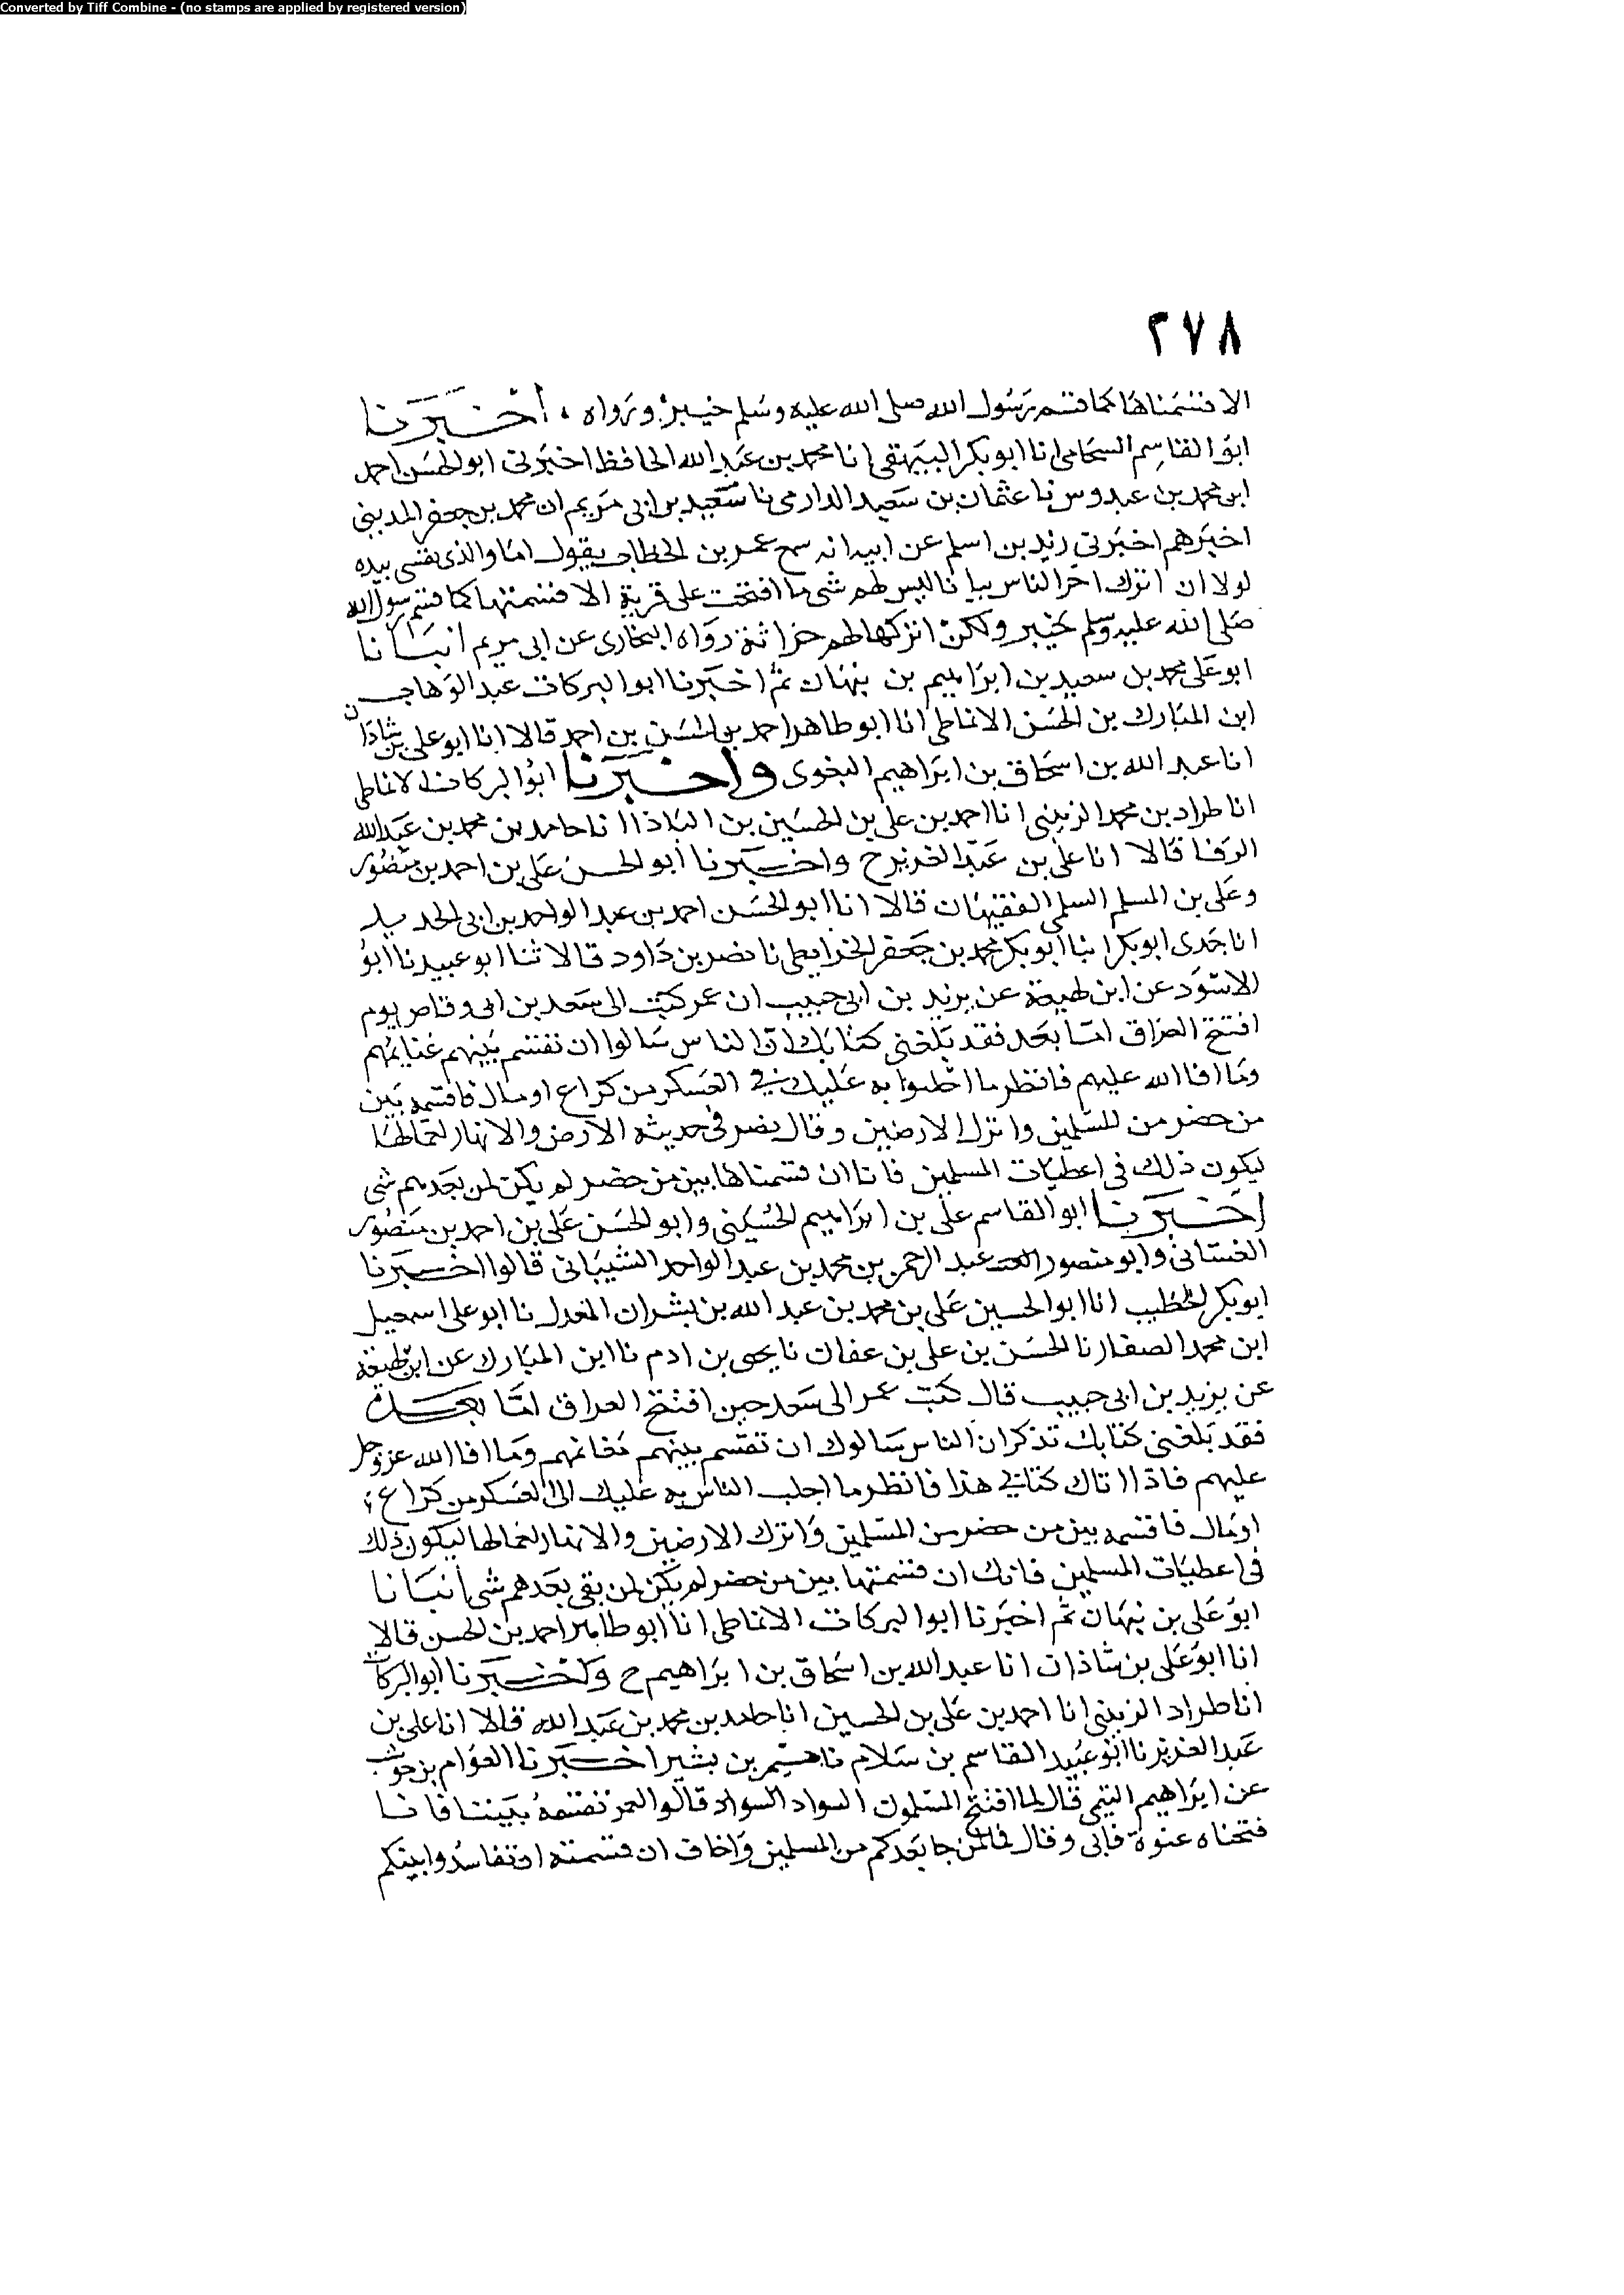 Converted by Tiff Combine - (no stamps are applied by registered version)
٢٧٨
الا قسمناها كما قسم رسول الله صلى الله عليه وسلم خيبر ورواه ، اخبرنا
ابو القاسم الشحامي انا ابو بكر البيهقي انا محمد بن عبد الله الحافظ اخبرني ابو الحسن احمد
ابن محمد بن عبدوس نا عثمان بن سعيد الدارمي نا سعيد بن ابي مريم ان محمد بن جعفر المديني
اخبرهم اخبرني زيد بن اسلم عن ابيه انه سمع عمر بن الخطاب يقول اما والذي نفسي بيده
لولا ان اترك اخر الناس ببانا ليس لهم شي ما افتتحت على قرية الا قسمتها كما قسم رسول الله
صلى الله عليه وسلم خيبر ولكن اتركها لهم خزانة رواه البخاري عن ابي مريم انبانا
ابو علي محمد بن سعيد بن ابراهيم بن نبهان ثم اخبرنا ابو البركات عبد الوهاب
ابن المبارك بن الحسن الانماطي انا ابو طاهر احمد بن الحسن بن احمد قالا انا ابو علي بن شاذان
انا عبد الله بن اسحاق بن ابراهيم البغوي واخبرنا ابو البركات الانماطي
انا طراد بن محمد الزينبي انا احمد بن علي بن الحسين بن الباذا انا حامد بن محمد بن عبد الله
الرفا قالا انا علي بن عبد العزيز ح واخبرنا ابو الحسن علي بن احمد بن منصور
وعلي بن المسلم السلمي الفقيهان قالا انا ابو الحسن احمد بن عبد الواحد بن ابي الحديد
انا جدي ابو بكر انبا ابو بكر محمد بن جعفر الخرايطي نا نصر بن داود قالا ثنا ابو عبيد نا ابو
الاسود عن ابن لهيعة عن يزيد بن ابي حبيب ان عمر كتب الى سعد بن ابي وقاص يوم
افتتح العراق اما بعد فقد بلغني كتابك ان الناس سالوا ان تقسم بينهم غنايمهم
وما افا الله عليهم فانظر ما اجلبوا به عليك في العسكر من كراع او مال فاقسمه بين
من حضر من المسلمين واترك الارضين وقال نصر في حديثه الارض والانهار لعمالها
ليكون ذلك في اعطيات المسلمين فانا ان قسمناها بين من حضر لم يكن لمن بعدهم شي
اخبرنا ابو القاسم علي بن ابراهيم الحسيني وابو الحسن علي بن احمد بن منصور
الغساني وابو منصور عبد الرحمن بن محمد بن عبد الواحد الشيباني قالوا اخبرنا
ابو بكر الخطيب انا ابو الحسين علي بن محمد بن عبد الله بن بشران المعدل نا ابو علي اسمعيل
ابن محمد الصفار نا الحسن بن علي بن عفان نا يحيى بن ادم نا ابن المبارك عن ابن لهيعة
عن يزيد بن ابي حبيب قال كتب عمر الى سعد حين افتتح العراق اما بعد
فقد بلغني كتابك تذكر ان الناس سالوك ان تقسم بينهم مغانمهم وما افا الله عز وجل
عليهم فاذا اتاك كتابي هذا فانظر ما اجلب الناس به عليك الى العسكر من كراع
او مال فاقسمه بين من حضر من المسلمين واترك الارضين والانهار لعمالها ليكون ذلك
في اعطيات المسلمين فانك ان قسمتها بين من حضر لم يكن لمن بقي بعدهم شي انبانا
ابو علي بن نبهان ثم اخبرنا ابو البركات الانماطي انا ابو طاهر احمد بن الحسن قالا
انا ابو علي بن شاذان انا عبد الله بن اسحاق بن ابراهيم ح واخبرنا ابو البركات
انا طراد الزينبي انا احمد بن علي بن الحسين انا حامد بن محمد بن عبد الله قالا انا علي بن
عبد العزيز نا ابو عبيد القاسم بن سلام نا هشيم بن بشير اخبرنا العوام بن حوشب
عن ابراهيم التيمي قال لما افتتح المسلمون السواد السواد قالوا لعمر نقسمه بيننا فانا
فتحناه عنوة فابى وقال فما لمن جا بعدكم من المسلمين واخاف ان قسمته ان تفاسدوا بينكم